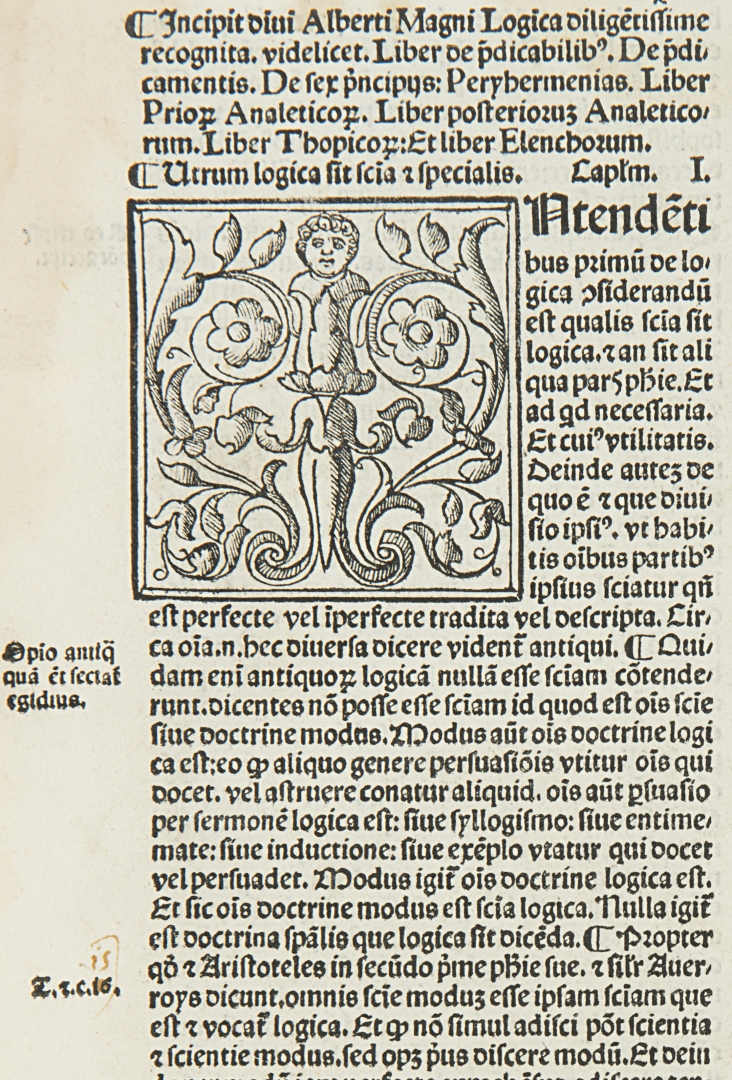 ¶ Incipit diui Alberti Magni Logica diligētissime
recognita. videlicet. Liber de p̄dicabilibꝰ. De p̄di⸗
camentis. De sex p̄ncipijs: Peryhermenias. Liber
Prioꝝ Analeticoꝝ. Liber posterioruꝫ Analetico⸗
rum. Liber Thopicoꝝ: Et liber Elenchorum.
¶ Utrum logica sit scīa ⁊ specialis. Capl̄m. I.
INtendēti
bus primū de lo⸗
gica ꝯsiderandū
est qualis scīa sit
logica. ⁊ an sit ali
qua pars ph̄ie. Et
ad qd necessaria.
Et cuiꝰ vtilitatis.
Deinde auteꝫ de
quo ē ⁊ que diui⸗
sio ipsiꝰ. vt habi⸗
tis oībus partibꝰ
ipsius sciatur qn̄
est perfecte vel īperfecte tradita vel descripta. Cir⸗
ca oīa .n. hec diuersa dicere vident̄ antiqui. ¶ Qui⸗
dam enī antiquoꝝ logicā nullā esse sciam cōtende⸗
runt. dicentes nō posse esse scīam id quod est oīs scīe
siue doctrine modus. Modus aūt oīs doctrine logi
ca est: eo ꝙ aliquo genere persuasiōis vtitur oīs qui
docet. vel astruere conatur aliquid. oīs aūt ꝑsuasio
per sermonē logica est: siue syllogismo: siue entime⸗
mate: siue inductione: siue exēplo vtatur qui docet
vel persuadet. Modus igit̄ oīs doctrine logica est.
Et sic oīs doctrine modus est scīa logica. Nulla igit̄
est doctrina spālis que logica sit dicēda. ¶ Propter
qd̄ ⁊ Aristoteles in secūdo p̄me ph̄ie sue. ⁊ sil̄r Auer⸗
roys dicunt, omnis scīe moduꝫ esse ipsam sciam que
est ⁊ vocat̄ logica. Et ꝙ nō simul adisci pōt scientia
⁊ scientie modus. sed opꝫ p̄us discere modū. Et dein
Opio antiq̄
quā ēt sectat̄
egidius.
15
T. ⁊. c. 16.